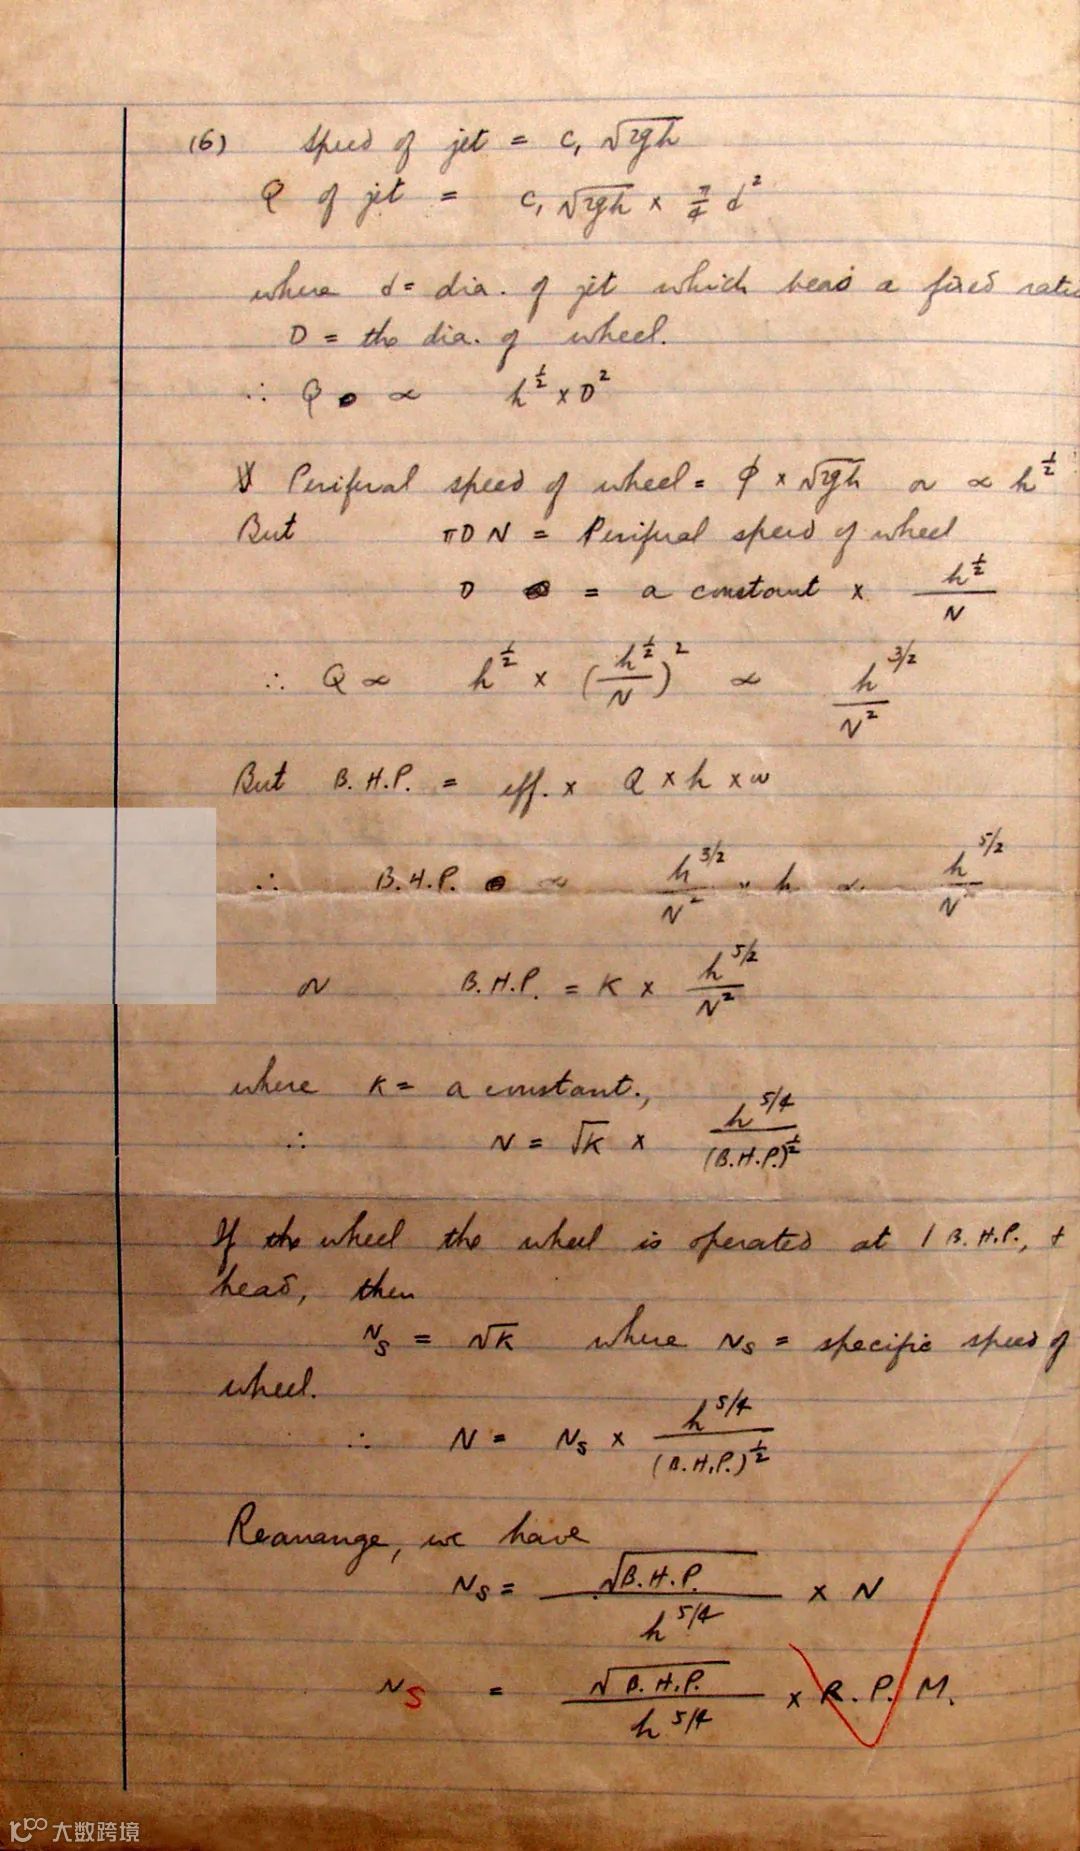 (6) Speed of jet = C₁ √2gh
Q of jet = C₁ √2gh × π/4 d²
where d = dia. of jet which bears a fixed ratio
D = the dia. of wheel.
∴ Q ∝ h^½ × D²
Periferal speed of wheel = φ × √2gh or ∝ h^½
But πDN = Periferal speed of wheel
D = a constant × h^½/N
∴ Q ∝ h^½ × (h^½/N)² ∝ h^3/2/N²
But B.H.P. = eff. × Q × h × w
∴ B.H.P. ∝ h^3/2/N² × h ∝ h^5/2/N²
or B.H.P. = K × h^5/2/N²
where K = a constant.,
∴ N = √K × h^5/4/(B.H.P.)^½
If the wheel the wheel is operated at 1 B.H.P., +
head, then
Ns = √K where Ns = specific speed of
wheel.
∴ N = Ns × h^5/4/(B.H.P.)^½
Rearrange, we have
Ns = √B.H.P./h^5/4 × N
Ns = √B.H.P./h^5/4 × R.P.M.
大数跨境